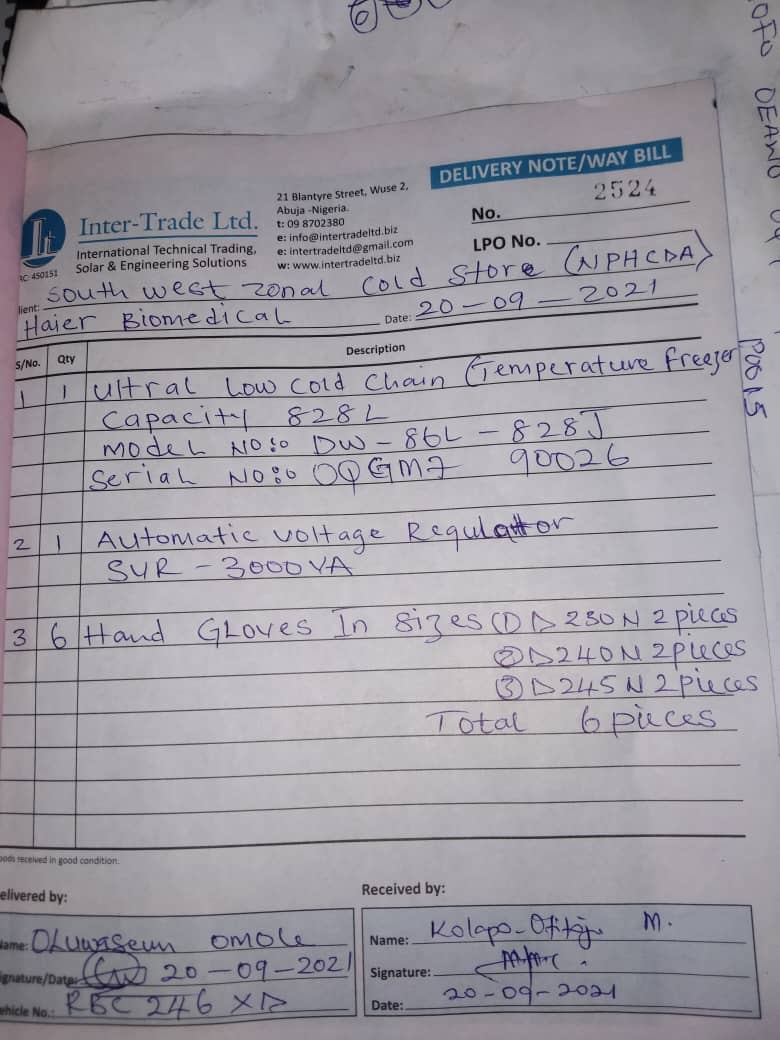 DELIVERY NOTE/WAY BILL
Inter-Trade Ltd.
International Technical Trading,
Solar & Engineering Solutions
RC: 450151
21 Blantyre Street, Wuse 2,
Abuja -Nigeria.
t: 09 8702380
e: info@intertradeltd.biz
e: intertradeltd@gmail.com
w: www.intertradeltd.biz
No. 2524
LPO No.
lient: South west zonal cold store (NPHCDA)
Haier Biomedical Date: 20-09-2021
S/No. Qty Description
1 1 Ultral Low Cold Chain (Temperature freezer
Capacity 828L
Model No: DW-86L-828J
Serial No: 90026
2 1 Automatic voltage Regulator
SVR-3000VA
3 6 Hand Gloves In sizes (1) D230N 2 pieces
(2) D240N 2 pieces
(3) D245N 2 pieces
Total 6 pieces
oods received in good condition.
elivered by:
ame: Oluwaseun Omole
ignature/Date: 20-09-2021
ehicle No.: RBC 246 XD
Received by:
Name: M.
Signature:
Date: 20-09-2021